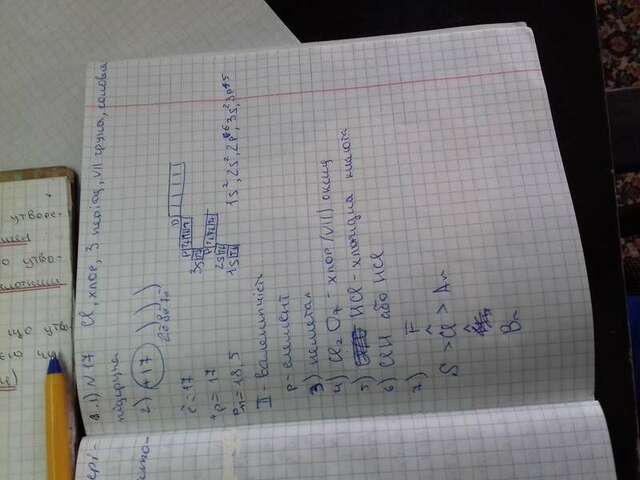 1) N 17 Cl, хлор, 3 період, VII група, головна
підгрупа
2) +17 ) ) )
2ē 8ē 7ē
ē = 17
p = 17
n = 18,5
1s², 2s², 2p⁶, 3s², 3p⁵
D
3s
2s
1s
II - валентність
p - елемент
3) неметал
4) Cl₂O₇ - хлор (VII) оксид
5) HCl - хлоридна кислота
6) ClH або HCl
7) F
^
S > Cl > Ar
^
Br
утворе-
що утво